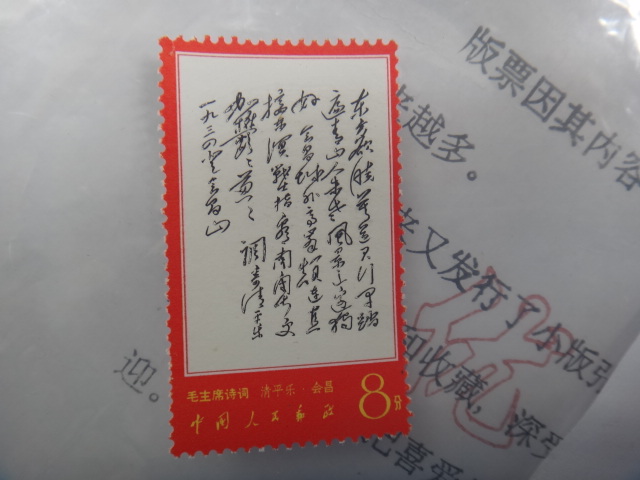 东方欲晓莫道君行早踏
遍青山人未老风景这边独
好 会昌城外高峰颠连直
接东溟战士指看南粤更
加郁々葱々 调寄清平乐
一九三四登会昌山
毛主席诗词 清平乐·会昌
中国人民邮政 8分
版票因其内容
越多。
又发行了小版张
和收藏,深受
迎。
喜爱